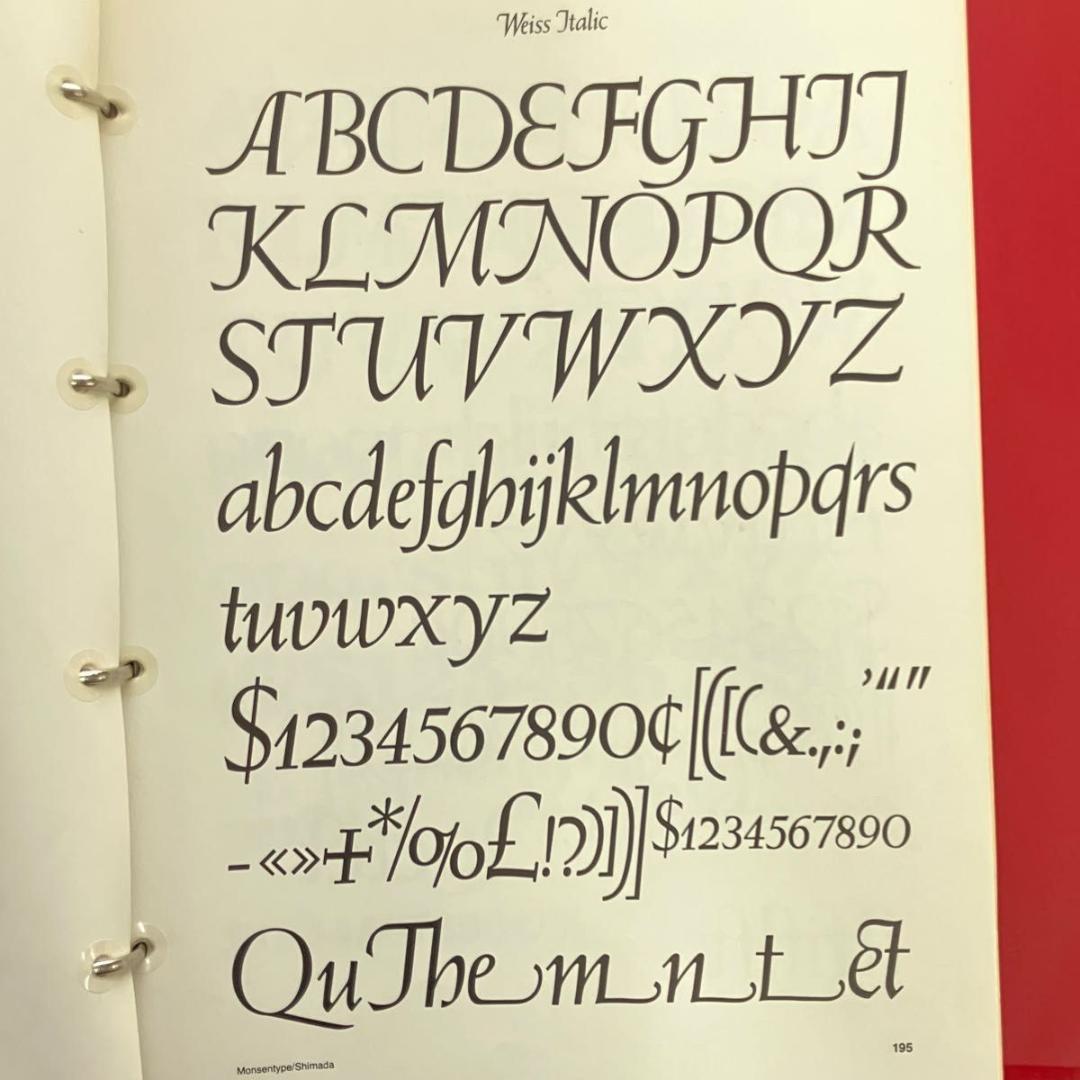 Weiss Italic
ABCDEFGHIJ
KLMNOPQR
STUVWXYZ
abcdefghijklmnopqrs
tuvwxyz
$1234567890¢[([(&.,:;’“”
-«»‡*/%£!?)])]$1234567890
QuThe m n t &
195
Monsentype/Shimada